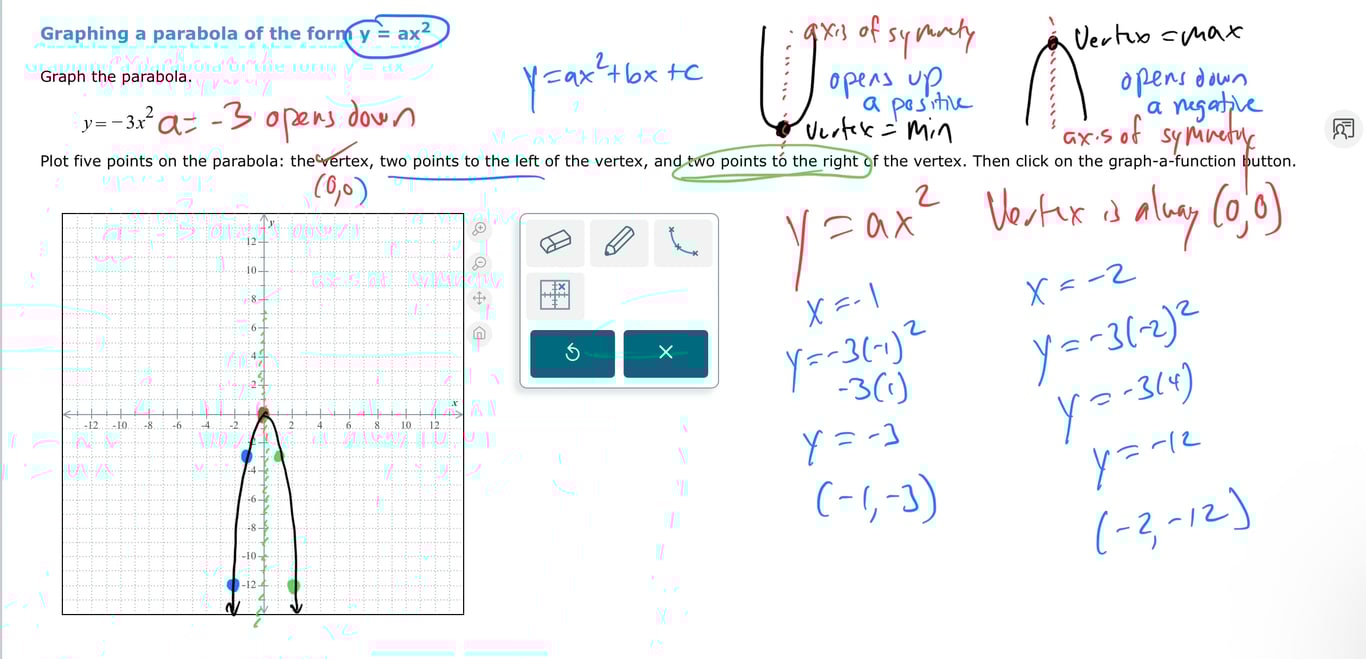 Graphing a parabola of the form y = ax²
Graph the parabola.
y = −3x² a = -3 opens down
y = ax² + bx + c
axis of symmetry
opens up
a positive
vertex = min
Vertex = max
opens down
a negative
axis of symmetry
Plot five points on the parabola: the vertex, two points to the left of the vertex, and two points to the right of the vertex. Then click on the graph-a-function button.
(0,0)
y = ax² Vertex is alway (0,0)
y
12
10
8
6
4
2
x
-12 -10 -8 -6 -4 -2 2 4 6 8 10 12
-4
-6
-8
-10
-12
x = -1
y = -3(-1)²
-3(1)
y = -3
(-1, -3)
x = -2
y = -3(-2)²
y = -3(4)
y = -12
(-2, -12)